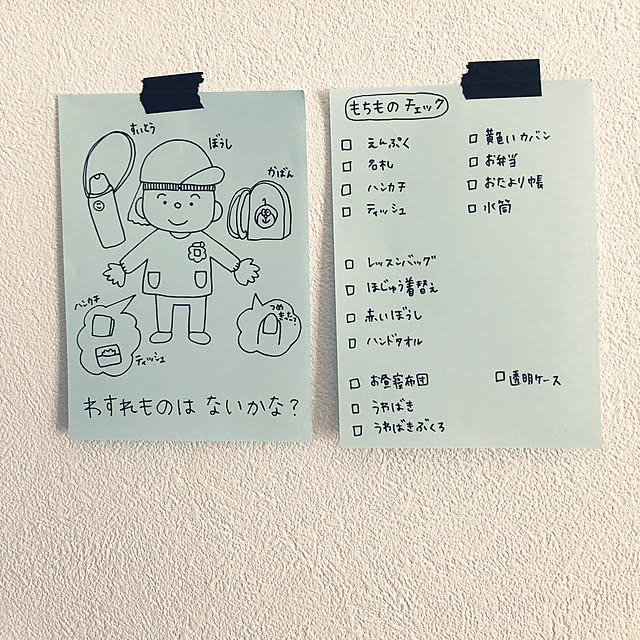 すいとう
ぼうし
かばん
ハンカチ
ティッシュ
つめ
きった?
わすれものは ないかな?
もちもの チェック
□ えんぷく
□ 名札
□ ハンカチ
□ ティッシュ
□ 黄色いカバン
□ お弁当
□ おたより帳
□ 水筒
□ レッスンバッグ
□ ほじゅう着替え
□ 赤いぼうし
□ ハンドタオル
□ お昼寝布団
□ うわばき
□ うわばきぶくろ
□ 透明ケース